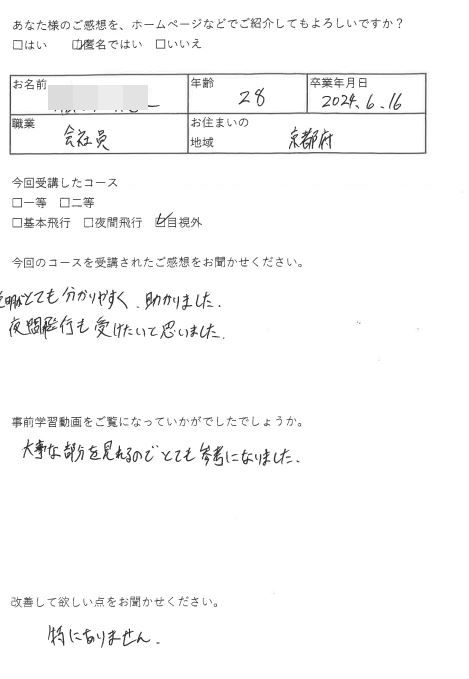 あなた様のご感想を、ホームページなどでご紹介してもよろしいですか？
□はい ☑匿名ではい □いいえ
お名前 年齢 28 卒業年月日 2024.6.16
職業 会社員 お住まいの地域 京都府
今回受講したコース
□一等 □二等
□基本飛行 □夜間飛行 ☑目視外
今回のコースを受講されたご感想をお聞かせください。
説明がとても分かりやすく、助かりました。
夜間飛行も受けたいて思いました。
事前学習動画をご覧になっていかがでしたでしょうか。
大事な部分を見れるのでとても参考になりました。
改善して欲しい点をお聞かせください。
特にありません。